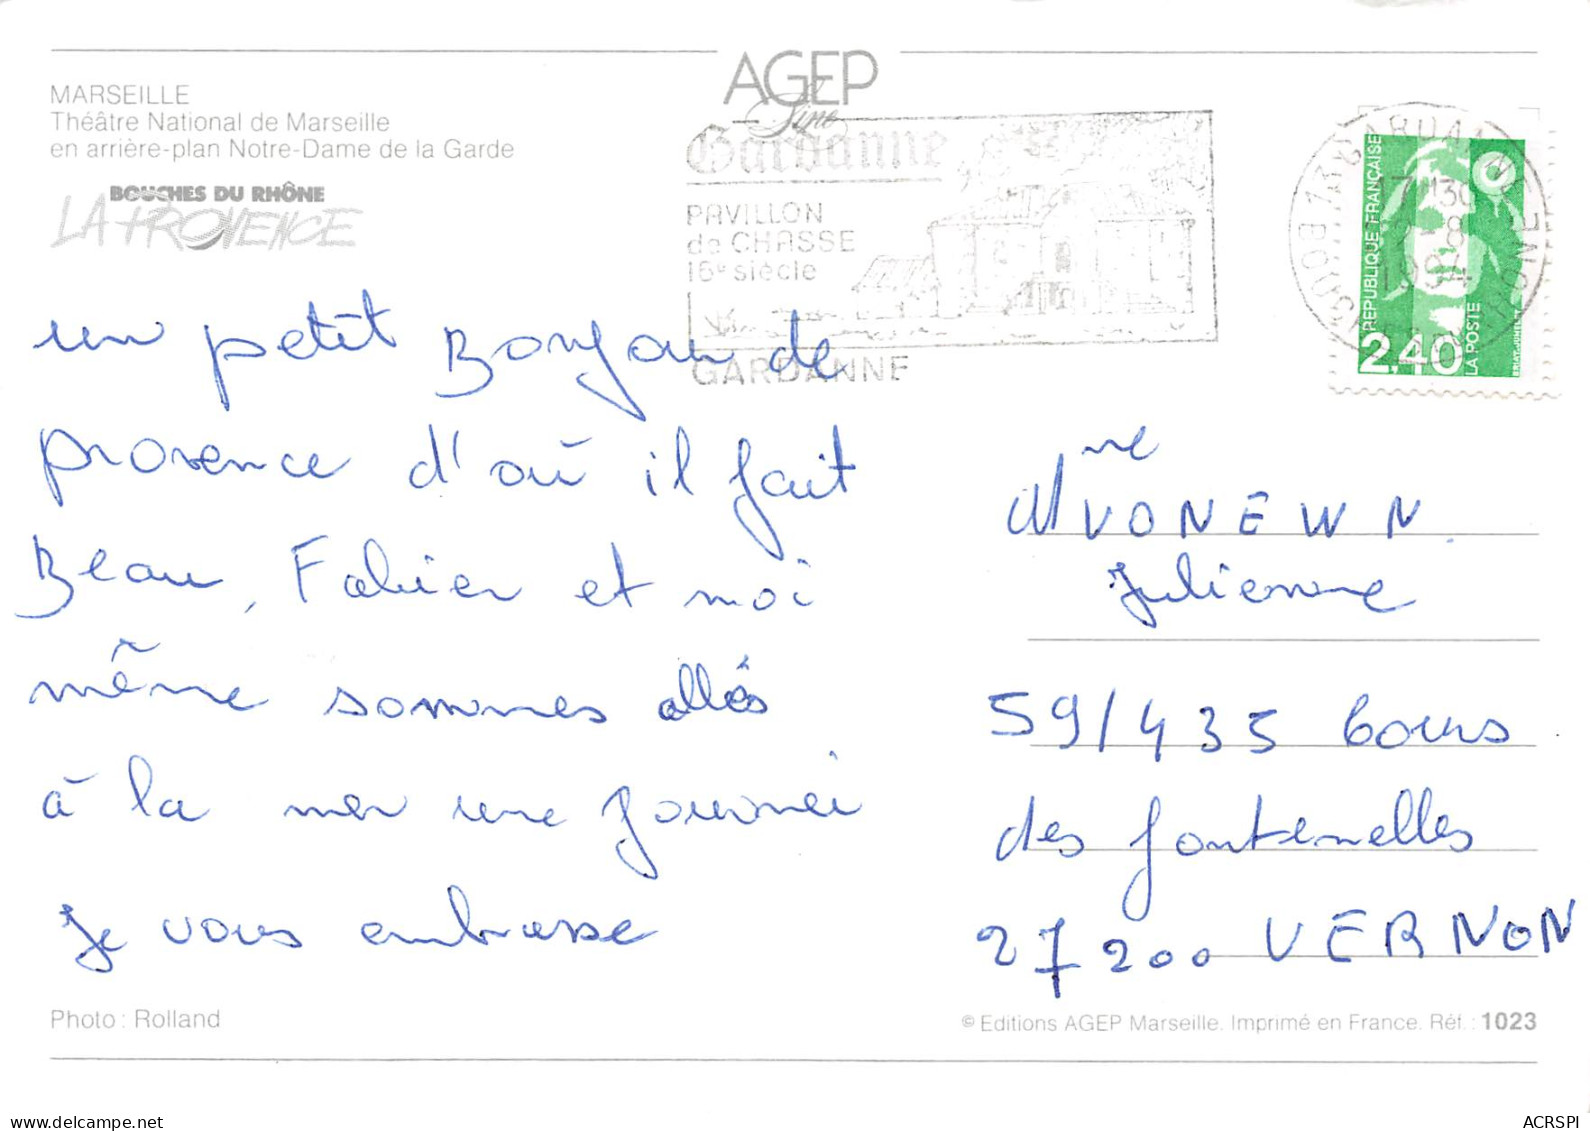 AGEP
MARSEILLE
Théâtre National de Marseille
en arrière-plan Notre-Dame de la Garde
BOUCHES DU RHÔNE
LA PROVENCE
Gardanne
PAVILLON
de CHASSE
16e siècle
GARDANNE
13 GARDANNE
17H30
8
1994
BOUCHES DU RHONE
REPUBLIQUE FRANÇAISE
2,40
LA POSTE
un petit Bonjou de
provence d'où il fait
Beau, Fabien et moi
même sommes allés
à la mer une journéi
je vous embrasse
Mme VONEWN
Julienne
59/435 Cours
des fontenelles
27200 VERNON
Photo : Rolland
© Editions AGEP Marseille. Imprimé en France. Réf. : 1023
ACRSPI